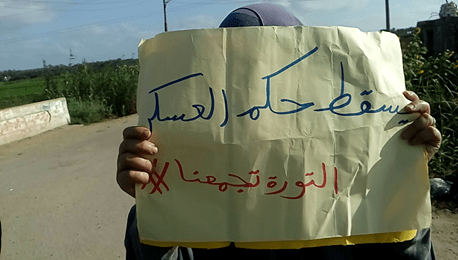 يسقط حكم العسكر
#الثورة تجمعنا